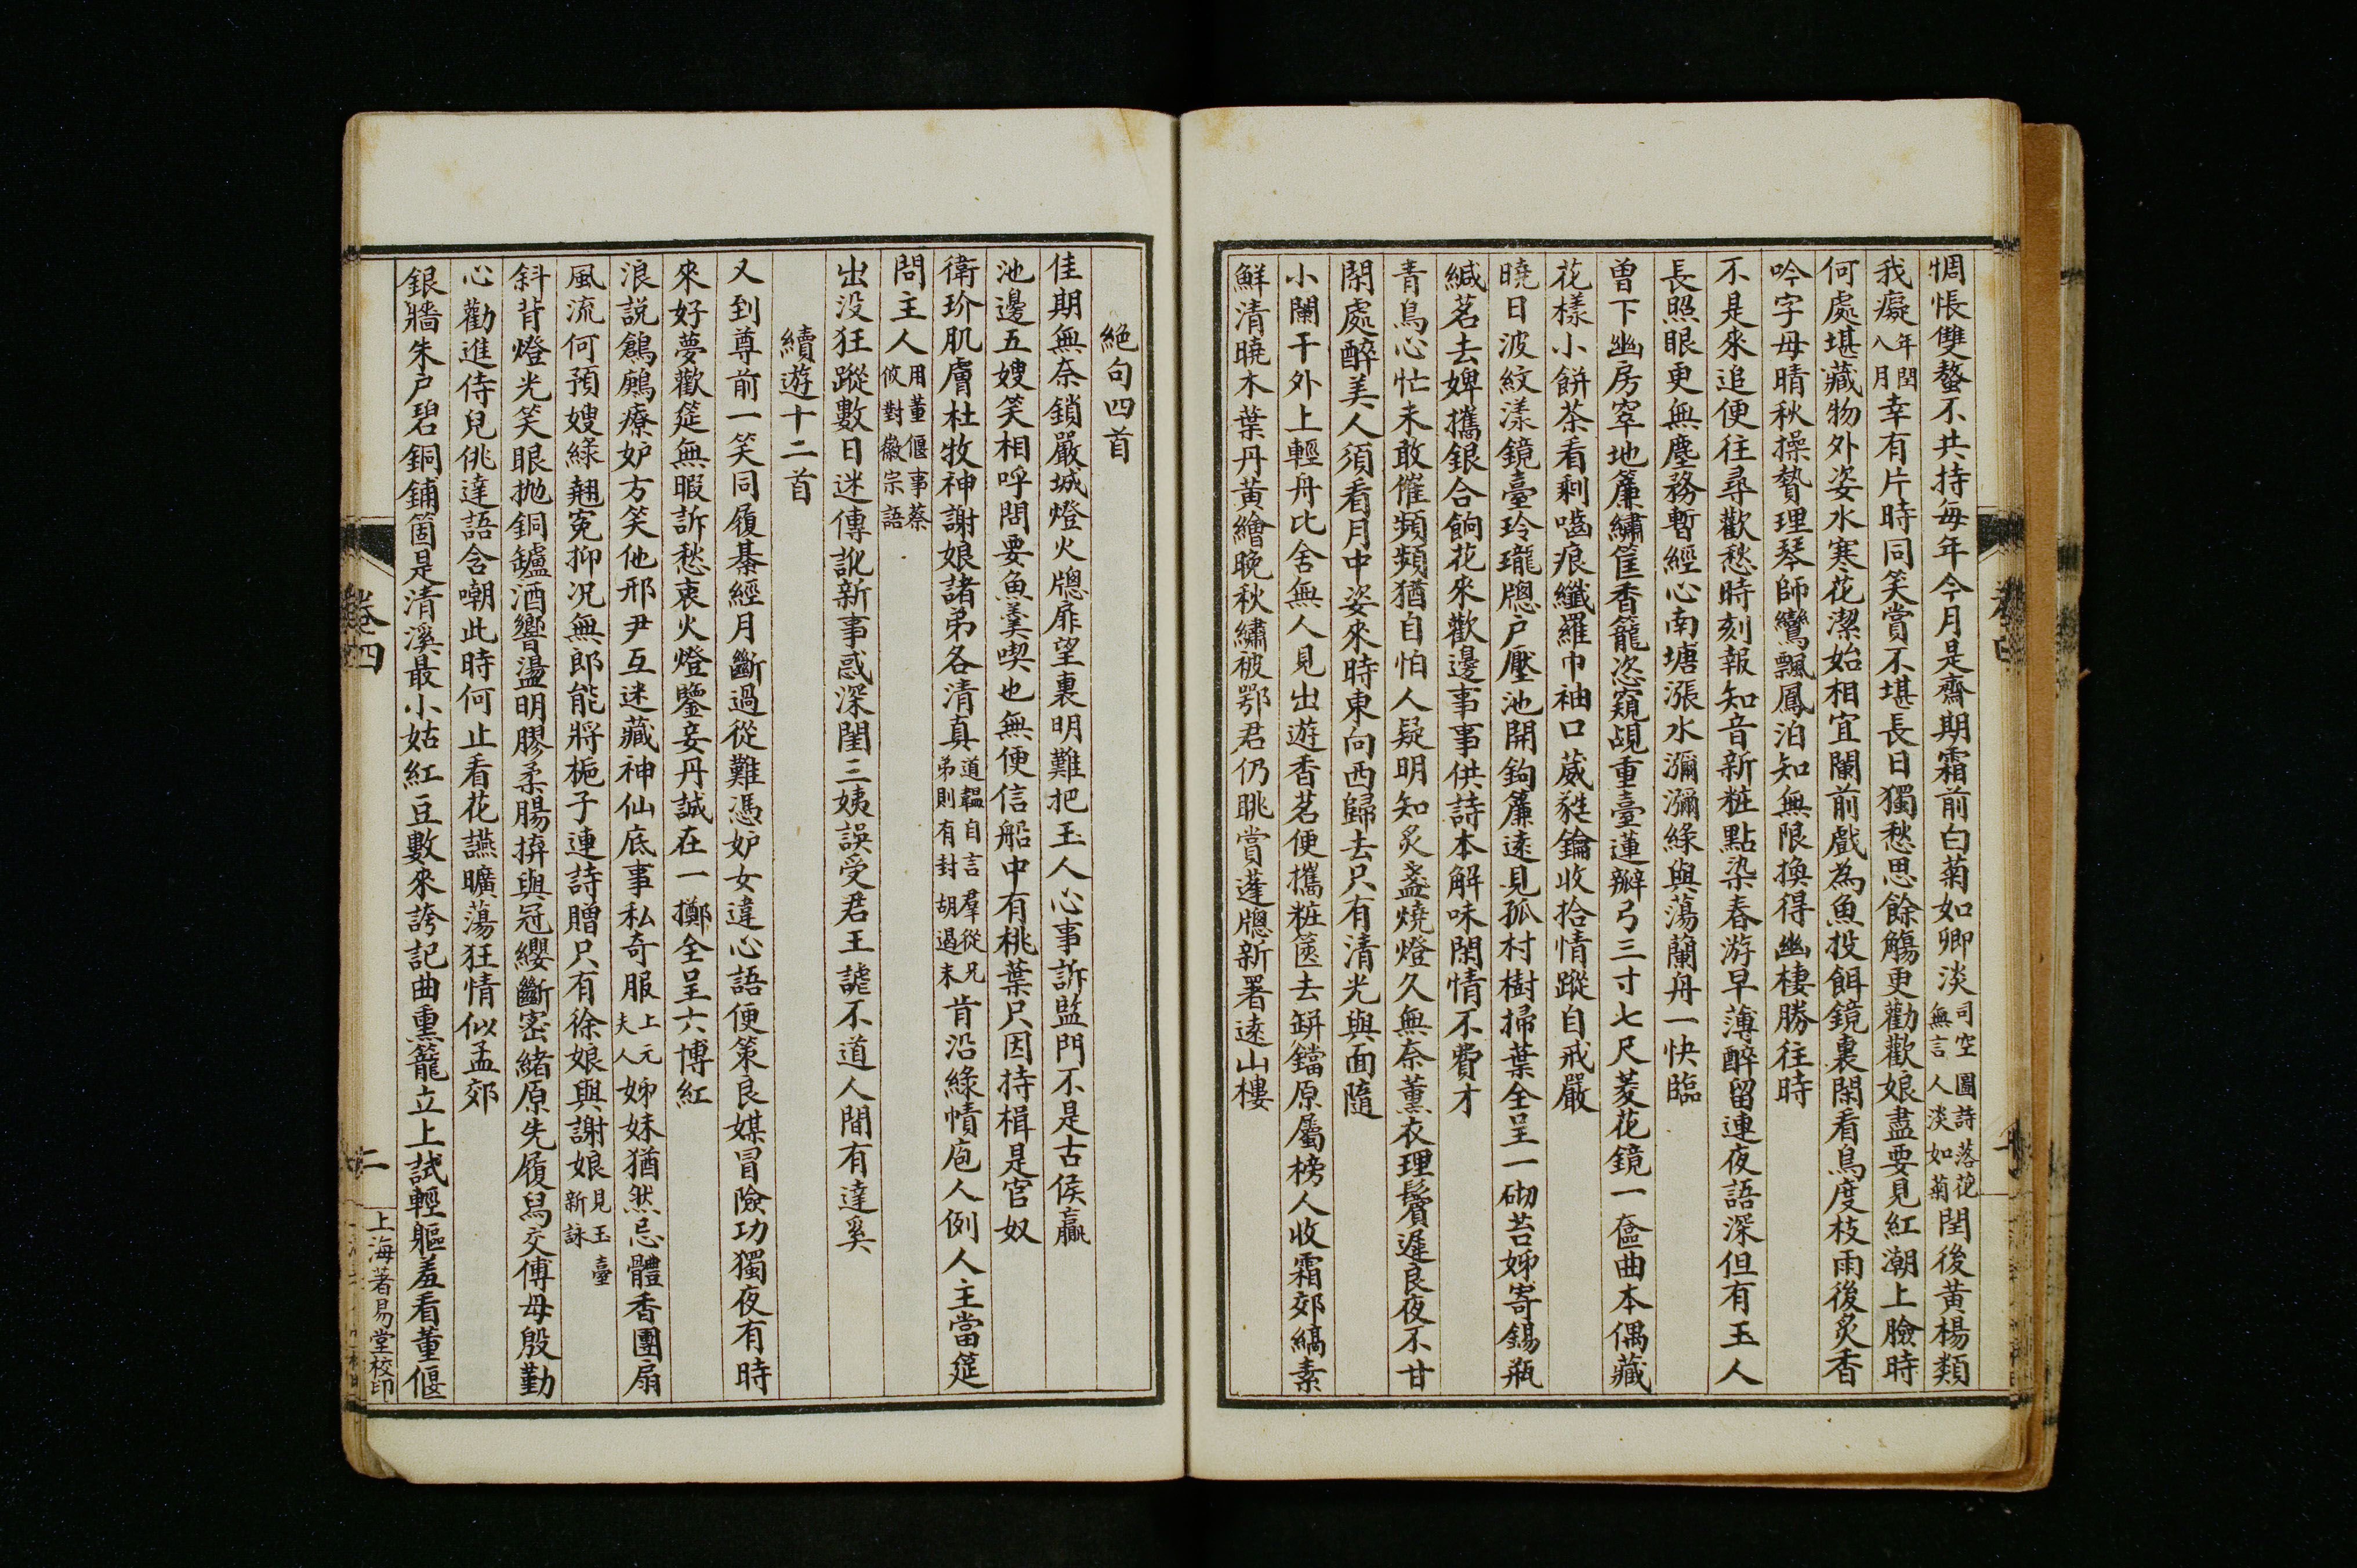 惆悵雙螯不共持每年今月是齋期霜前白菊如卿淡司空圖詩落花無言人淡如菊閏後黃楊類
我癡年閏八月幸有片時同笑賞不堪長日獨愁思餘觴更勸歡娘盡要見紅潮上臉時
何處堪藏物外姿水寒花潔始相宜闌前戲為魚投餌鏡裏閑看鳥度枝雨後炙香
吟字母晴秋操贄理琴師鸞飄鳳泊知無限換得幽棲勝往時
不是來追便往尋歡愁時刻報知音新粧點染春游早薄醉留連夜語深但有玉人
長照眼更無塵務暫經心南塘漲水瀰瀰綠與蕩蘭舟一快臨
曾下幽房窣地簾繡筐香籠恣窺覘重臺蓮瓣弓三寸七尺菱花鏡一奩曲本偶藏
花樣小餅茶看剩嚙痕纖羅巾袖口葳蕤鑰收拾情蹤自戒嚴
曉日波紋漾鏡臺玲瓏牕戶壓池開鉤簾遠見孤村樹掃葉全呈一砌苔姊寄錫瓶
緘茗去婢攜銀合餉花來歡邊事事供詩本解味閑情不費才
青鳥心忙未敢催頻頻猶自怕人疑明知炙盞燒燈久無奈薰衣理鬢遲良夜不甘
閑處醉美人須看月中姿來時東向西歸去只有清光與面隨
小闌干外上輕舟比舍無人見出遊香茗便攜粧篋去缾鐺原屬榜人收霜郊縞素
鮮清曉木葉丹黃繪晚秋繡被鄂君仍眺賞蓬牕新署遠山樓
絕句四首
佳期無奈鎖嚴城燈火牕扉望裏明難把玉人心事訴監門不是古侯嬴
池邊五嫂笑相呼問要魚羹喫也無便信船中有桃葉尺因持楫是官奴
衛玠肌膚杜牧神謝娘諸弟各清真道韞自言羣從兄弟則有封胡遏末肯沿綠幘庖人例人主當筵
問主人用董偃事蔡攸對徽宗語
出没狂蹤數日迷傳訛新事惑深閨三姨誤受君王謔不道人間有達奚
續遊十二首
又到尊前一笑同履綦經月斷過從難憑妒女違心語便策良媒冒險功獨夜有時
來好夢歡筵無暇訴愁衷火燈鑒妾丹誠在一擲全呈六博紅
浪説鶬鶊療妒方笑他邢尹互迷藏神仙底事私奇服上元夫人姊妹猶然忌體香團扇
風流何預嫂綠翹冤抑况無郎能將梔子連詩贈只有徐娘與謝娘見玉臺新詠
斜背燈光笑眼抛銅鑪酒響盪明膠柔腸拚與冠纓斷密緒原先履舄交傅母殷勤
心勸進侍兒佻達語含嘲此時何止看花讌曠蕩狂情似孟郊
銀牆朱戶碧銅鋪箇是清溪最小姑紅豆數來誇記曲熏籠立上試輕軀羞看董偃
卷四
二
上海著易堂校印